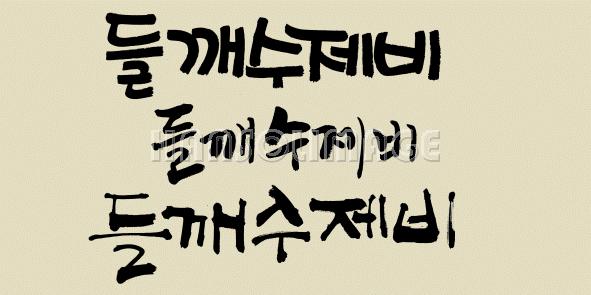 들깨수제비
들깨수제비
HANJOLIMAGE
들깨수제비